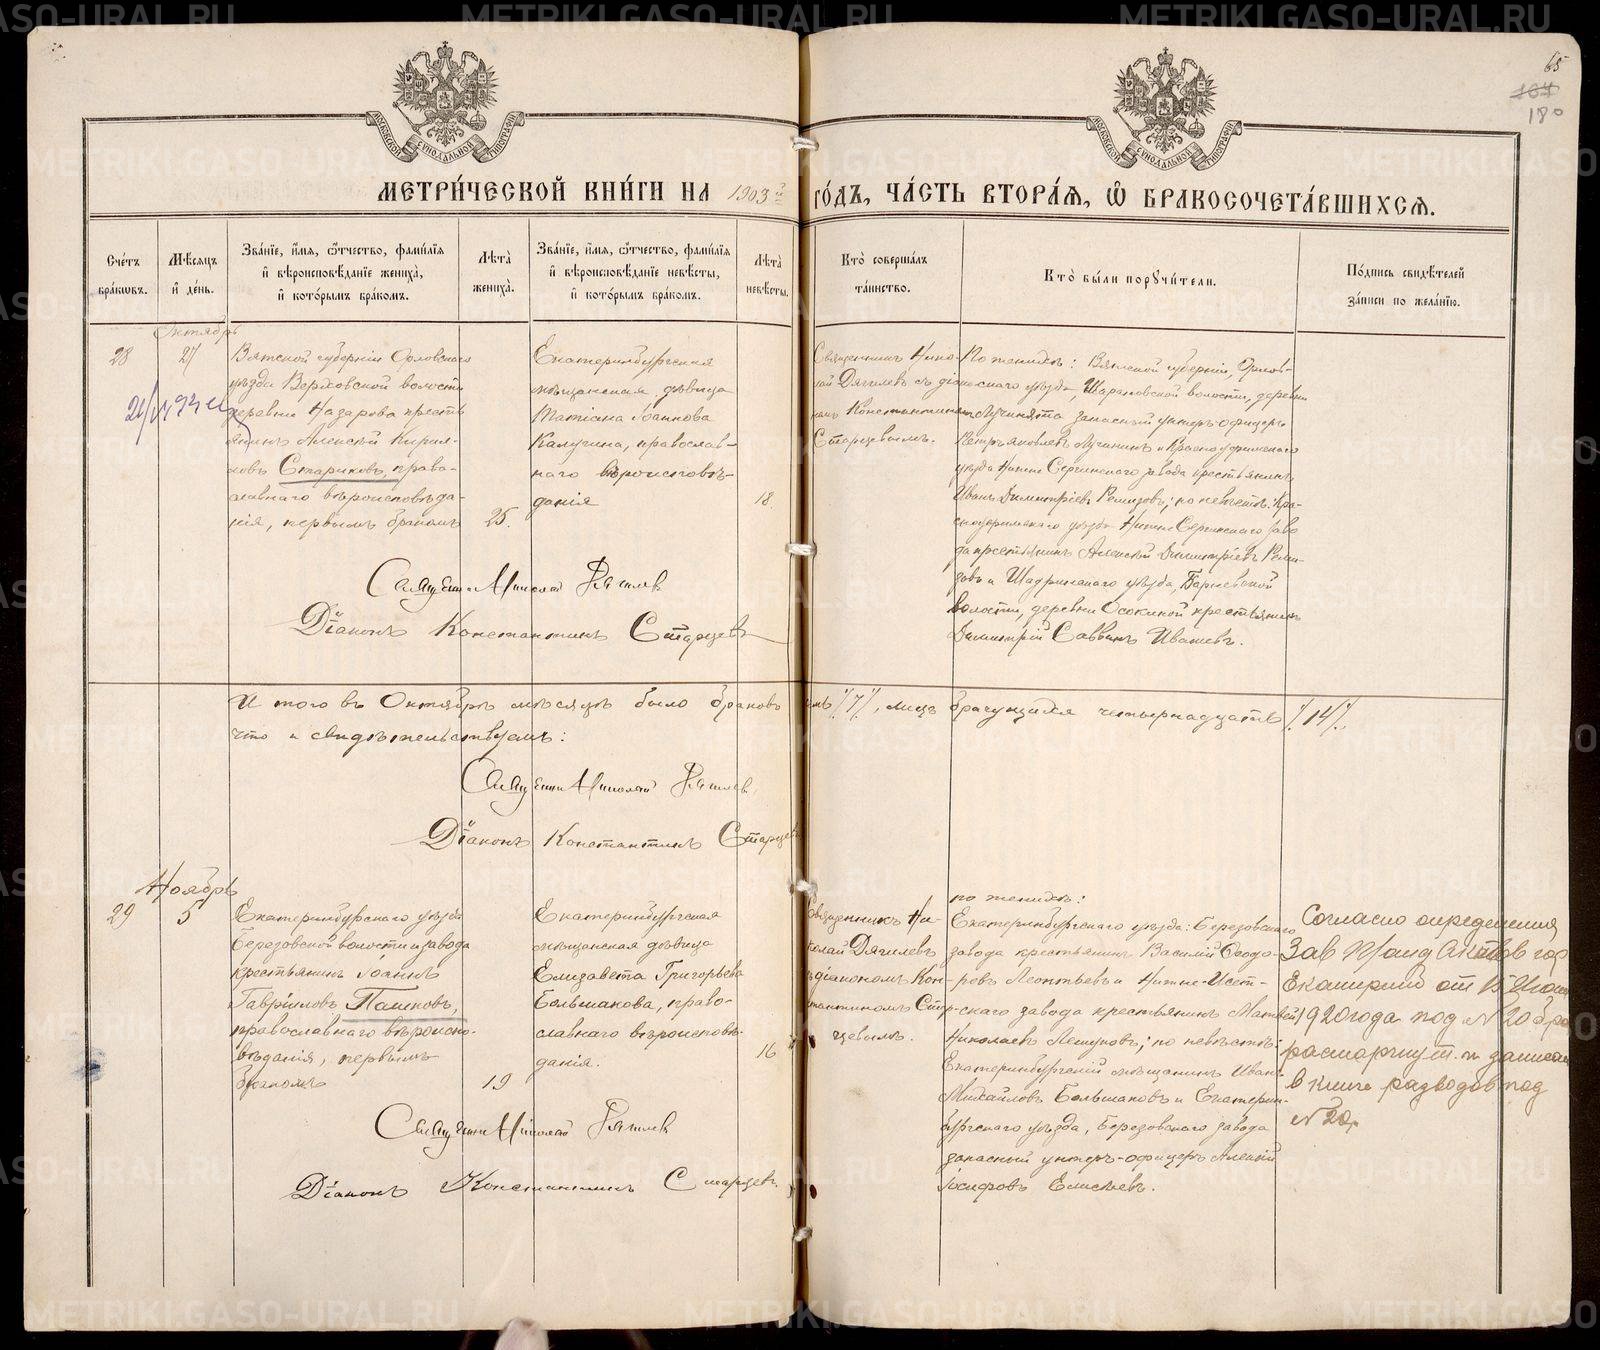 65
180
МЕТРИ́ЧЕСКОЙ КНИ́ГИ НА 1903 й ГО́ДЪ, ЧА́СТЬ ВТОРА́Я, Ѡ БРАКОСОЧЕТА́ВШИХСЯ.
МОСКОВСКОЙ СУНОДАЛЬНОЙ ТИПОГРАФІИ
МОСКОВСКОЙ СУНОДАЛЬНОЙ ТИПОГРАФІИ
Сче́тъ бра́кѡвъ.
Мѣ́сяцъ и҆ де́нь.
Зва́нїе, и҆́мя, ѻ҆́тчество, фами́лїя и҆ вѣроисповѣ́данїе жениха̀, и҆ кото́рымъ бра́комъ.
Лѣ́та жениха̀.
Зва́нїе, и҆́мя, ѻ҆́тчество, фами́лїя и҆ вѣроисповѣ́данїе невѣ́сты, и҆ кото́рымъ бра́комъ.
Лѣ́та невѣ́сты.
Кто̀ соверша́лъ та́инство.
Кто̀ бы́ли порꙋчи́тели.
По́дпись свидѣ́телей за́писи по жела́нїю.
Октябрь
28
27
Вятской губерніи Орловскаго
уѣзда Верховской волости
деревни Назарова кресть
янинъ Алексѣй Кирил-
ловъ Стариковъ, право-
славнаго вѣроисповѣда-
нія, первымъ бракомъ
25.
Екатеринбургская
мѣщанская дѣвица
Татіана Іоаннова
Калугина, православ-
наго вѣроисповѣ-
данія
18.
Священникъ Нико-
лай Дягилевъ съ діако-
номъ Константиномъ
Старцевымъ.
По женихѣ: Вятской губерніи, Орлов-
скаго уѣзда, Шараповской волости, деревни
Лучинята запасный унтеръ-офицеръ
Петръ Яковлевъ Лучининъ и Красноуфимскаго
уѣзда Нижне Сергинскаго завода крестьянинъ
Иванъ Димитріевъ Ремизовъ; по невѣстѣ: Кра-
сноуфимскаго уѣзда Нижне Сергинскаго заво
да крестьянинъ Алексѣй Димитріевъ Реми-
зовъ и Шадринскаго уѣзда, Барневской
волости, деревни Осокиной крестьянинъ
Димитрій Саввинъ Ивачевъ.
Священникъ Николай Дягилевъ
Діаконъ Константинъ Старцевъ
Итого въ Октябрѣ мѣсяцѣ было браковъ семь /7/, лицъ брачущихся четырнадцать /14/,
что и свидѣтельствуемъ:
Священникъ Николай Дягилевъ
Діаконъ Константинъ Старцевъ
Ноябрь
29
5
Екатеринбургскаго уѣзда
Березовской волости и завода
крестьянинъ Іоаннъ
Гавріиловъ Палковъ,
православнаго вѣроиспо-
вѣданія, первымъ
бракомъ
19
Екатеринбургская
мѣщанская дѣвица
Елизавета Григорьева
Большакова, право-
славнаго вѣроисповѣ-
данія.
16
Священникъ Ни-
колай Дягилевъ
съ діакономъ Кон-
стантиномъ Стар-
цевымъ.
по женихѣ:
Екатеринбургскаго уѣзда: Березовскаго
завода крестьянинъ Василій Ѳеодо-
ровъ Леонтьевъ и Нижне-Исет-
скаго завода крестьянинъ Матвѣй
Николаевъ Лепуновъ; по невѣстѣ:
Екатеринбургскій мѣщанинъ Иванъ
Михайловъ Большаковъ и Екатерин-
бургскаго уѣзда, Березовскаго завода
запасный унтеръ-офицеръ Алексѣй
Іосифовъ Елисѣевъ.
Согласно определения
Зав Актов гор
от
1920 года под № 20 бра
расторгнут и записан
в книге разводов под
№ 20.
Священникъ Николай Дягилевъ
Діаконъ Константинъ Старцевъ
METRIKI.GASO-URAL.RU